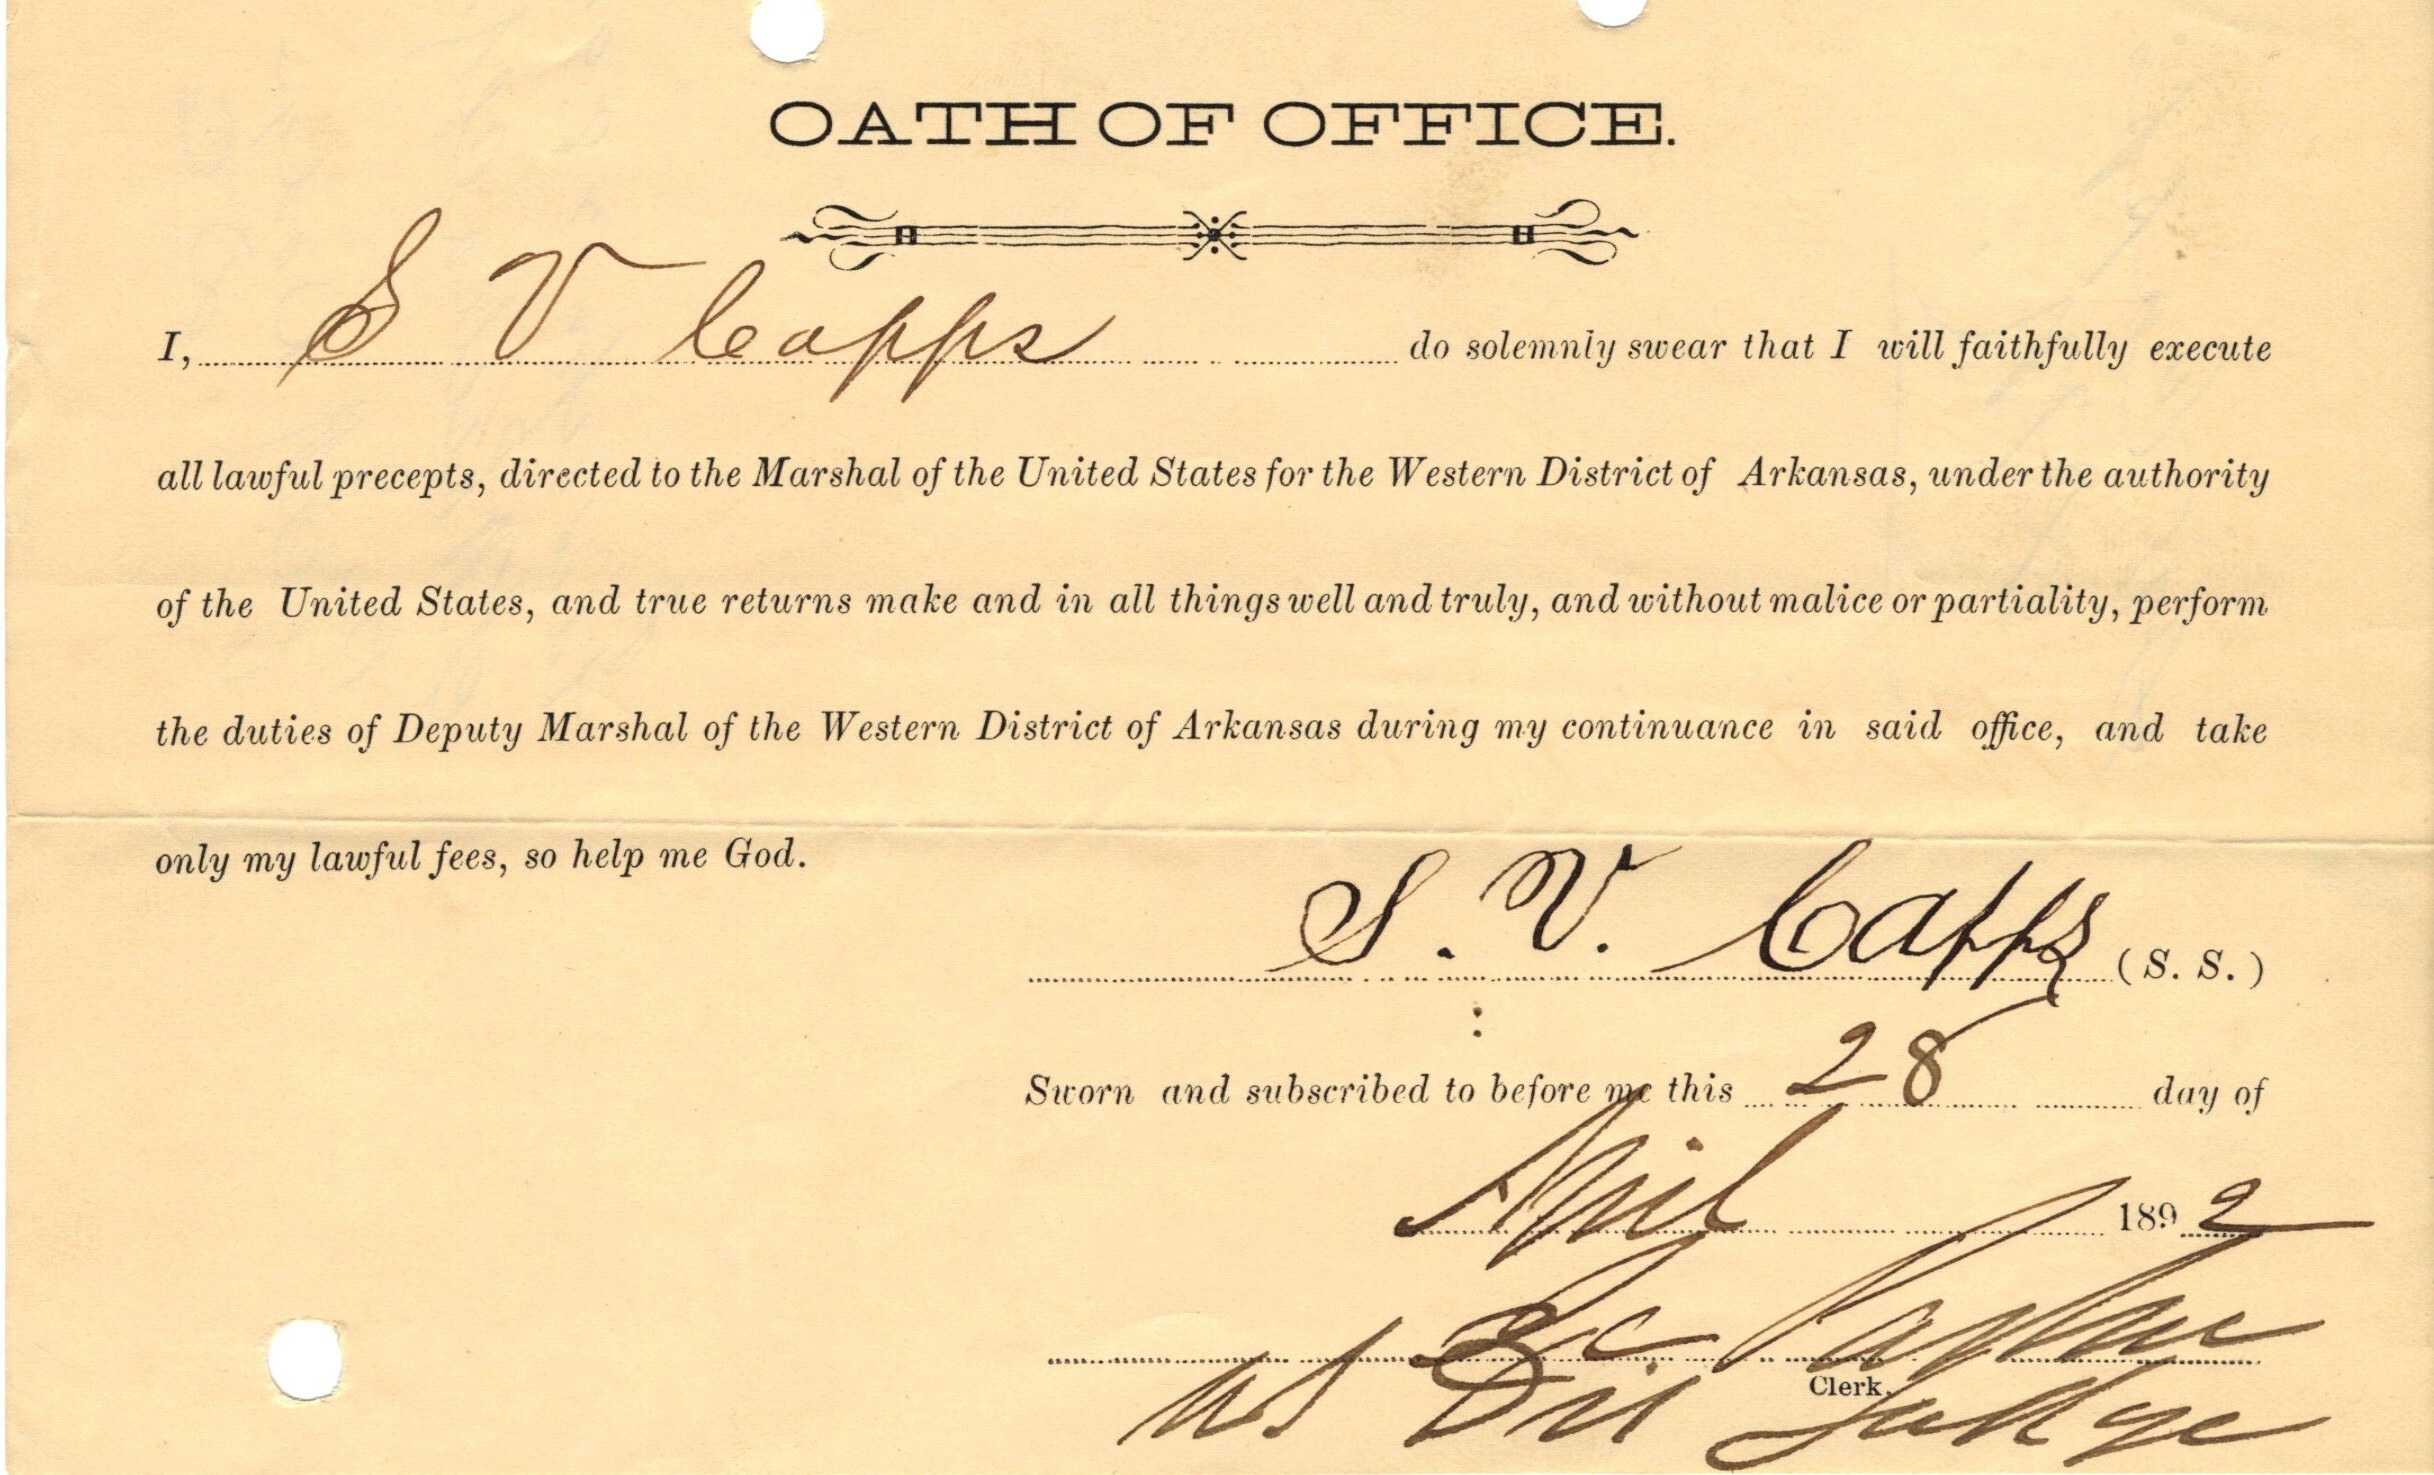 OATH OF OFFICE.
I, S V Capps do solemnly swear that I will faithfully execute
all lawful precepts, directed to the Marshal of the United States for the Western District of Arkansas, under the authority
of the United States, and true returns make and in all things well and truly, and without malice or partiality, perform
the duties of Deputy Marshal of the Western District of Arkansas during my continuance in said office, and take
only my lawful fees, so help me God.
S. V. Capps (S. S.)
Sworn and subscribed to before me this 28 day of
April 1892
I C Parker
Clerk.
US Dis Judge